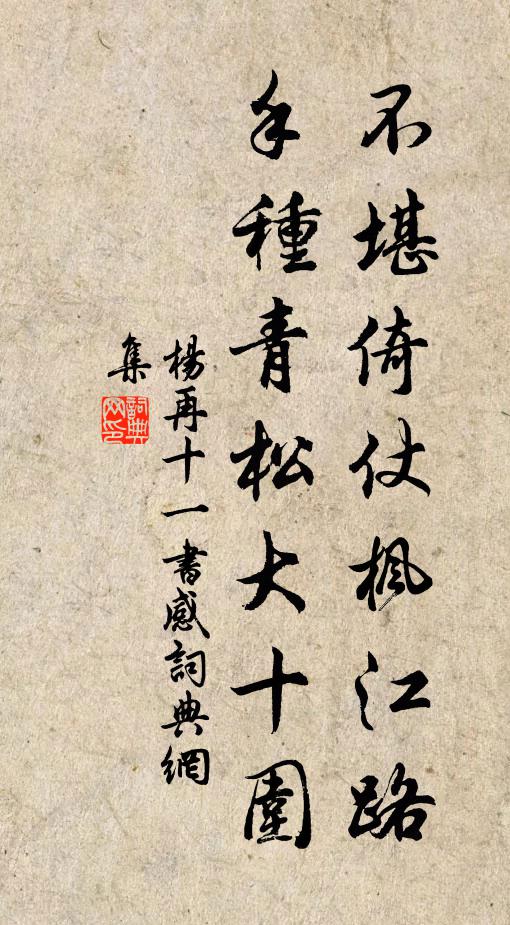 不堪倚仗楓江路
手種青松大十圍
楊再十一書感詞典網
集
詞典網印